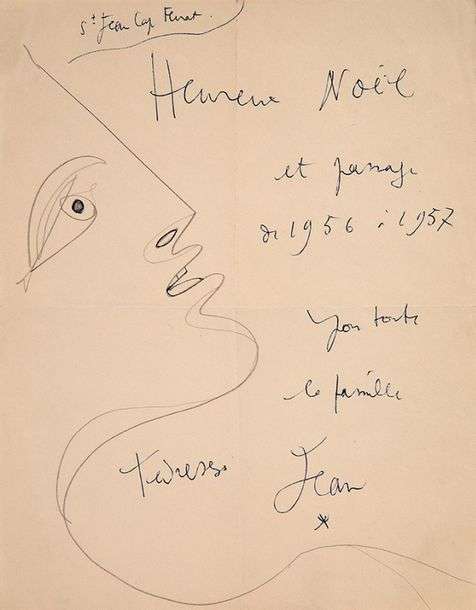 St Jean Cap Ferrat.
Heureux Noël
et passage
de 1956 à 1957
pour toute
la famille
Tendresse
Jean